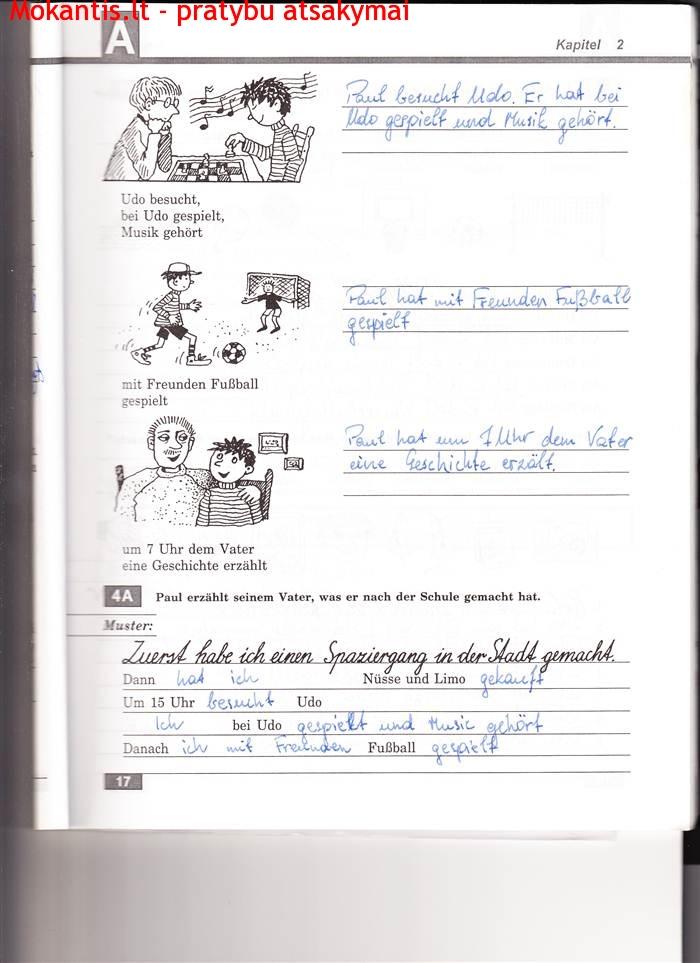 Mokantis.lt - pratybu atsakymai
A
Kapitel 2
Paul besucht Udo. Er hat bei
Udo gespielt und Musik gehört.
Udo besucht,
bei Udo gespielt,
Musik gehört
Paul hat mit Freunden Fußball
gespielt
mit Freunden Fußball
gespielt
Paul hat um 7 Uhr dem Vater
eine Geschichte erzält.
um 7 Uhr dem Vater
eine Geschichte erzählt
4A Paul erzählt seinem Vater, was er nach der Schule gemacht hat.
Muster:
Zuerst habe ich einen Spaziergang in der Stadt gemacht.
Dann hat ich Nüsse und Limo gekauft
Um 15 Uhr besucht Udo
Ich bei Udo gespielt und Music gehört
Danach ich mit Freunden Fußball gespielt
17